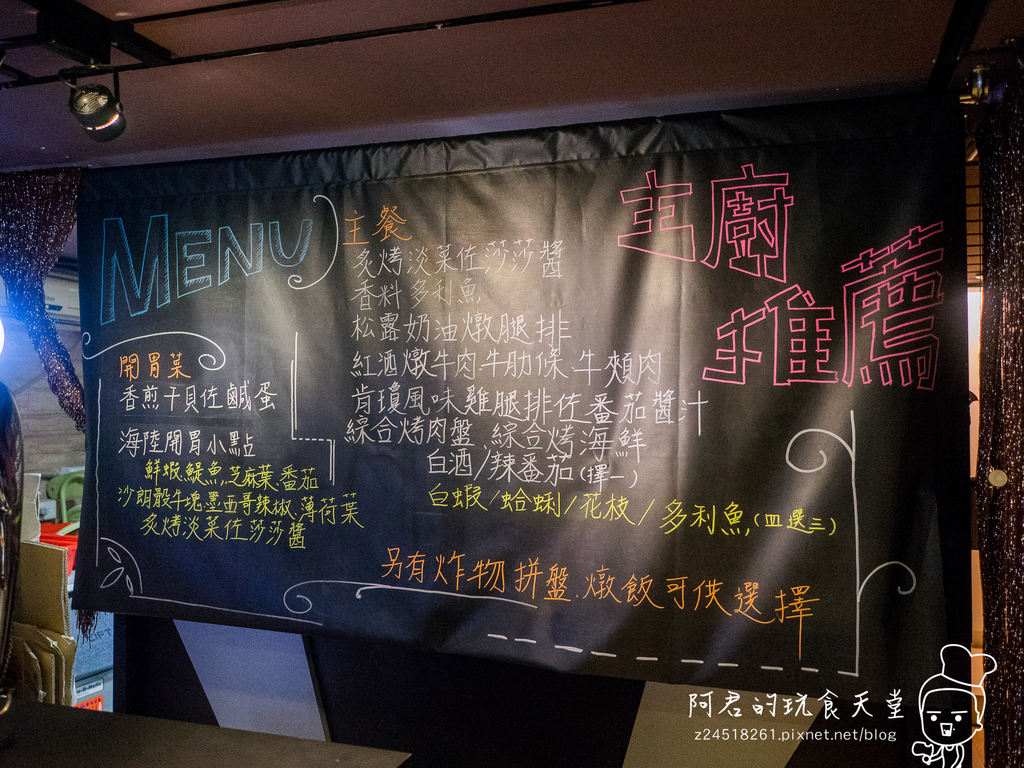 MENU
主廚
推薦
開胃菜
香煎干貝佐鹹蛋
海陸開胃小點
鮮蝦鯷魚.芝麻葉.番茄
沙朗骰牛塊.墨西哥辣椒.薄荷葉
炙烤淡菜佐莎莎醬
主餐
炙烤淡菜佐莎莎醬
香料多利魚
松露奶油燉腿排
紅酒燉牛肉.牛肋條.牛頰肉
肯瓊風味雞腿排佐番茄醬汁
綜合烤肉盤 綜合烤海鮮
白酒/辣番茄(擇一)
白蝦/蛤蜊/花枝/多利魚(四選三)
另有炸物拼盤.燉飯可供選擇
阿君的玩食天堂
z24518261.pixnet.net/blog